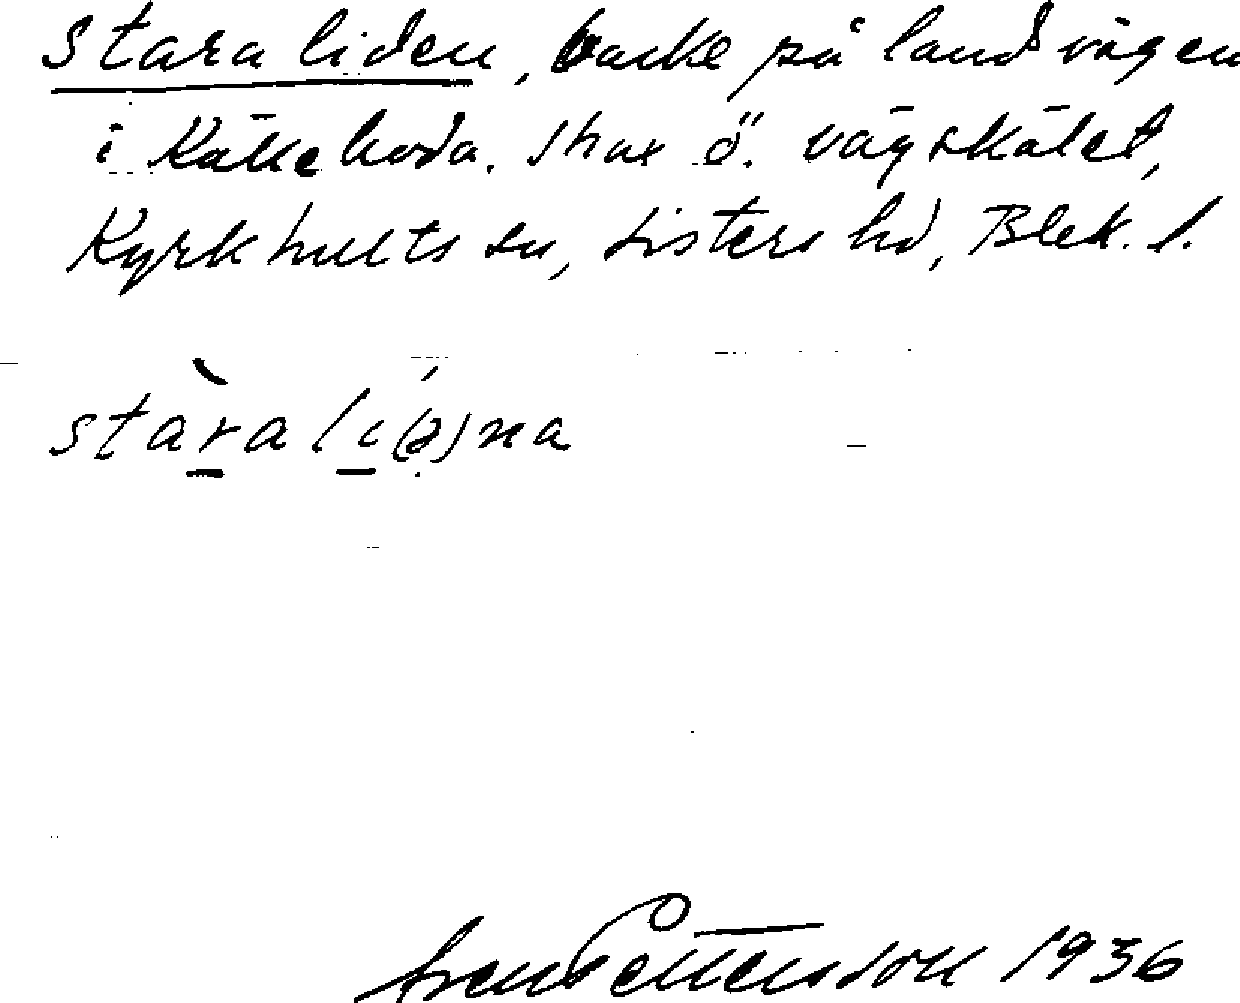 Stara liden, backe på landsvägen
i Käkeboda. Strax ö. vägskälet,
Kyrkhults sn, Listers hd, Blek. l.
stàra li(ə)na
Sven Pettersson 1936